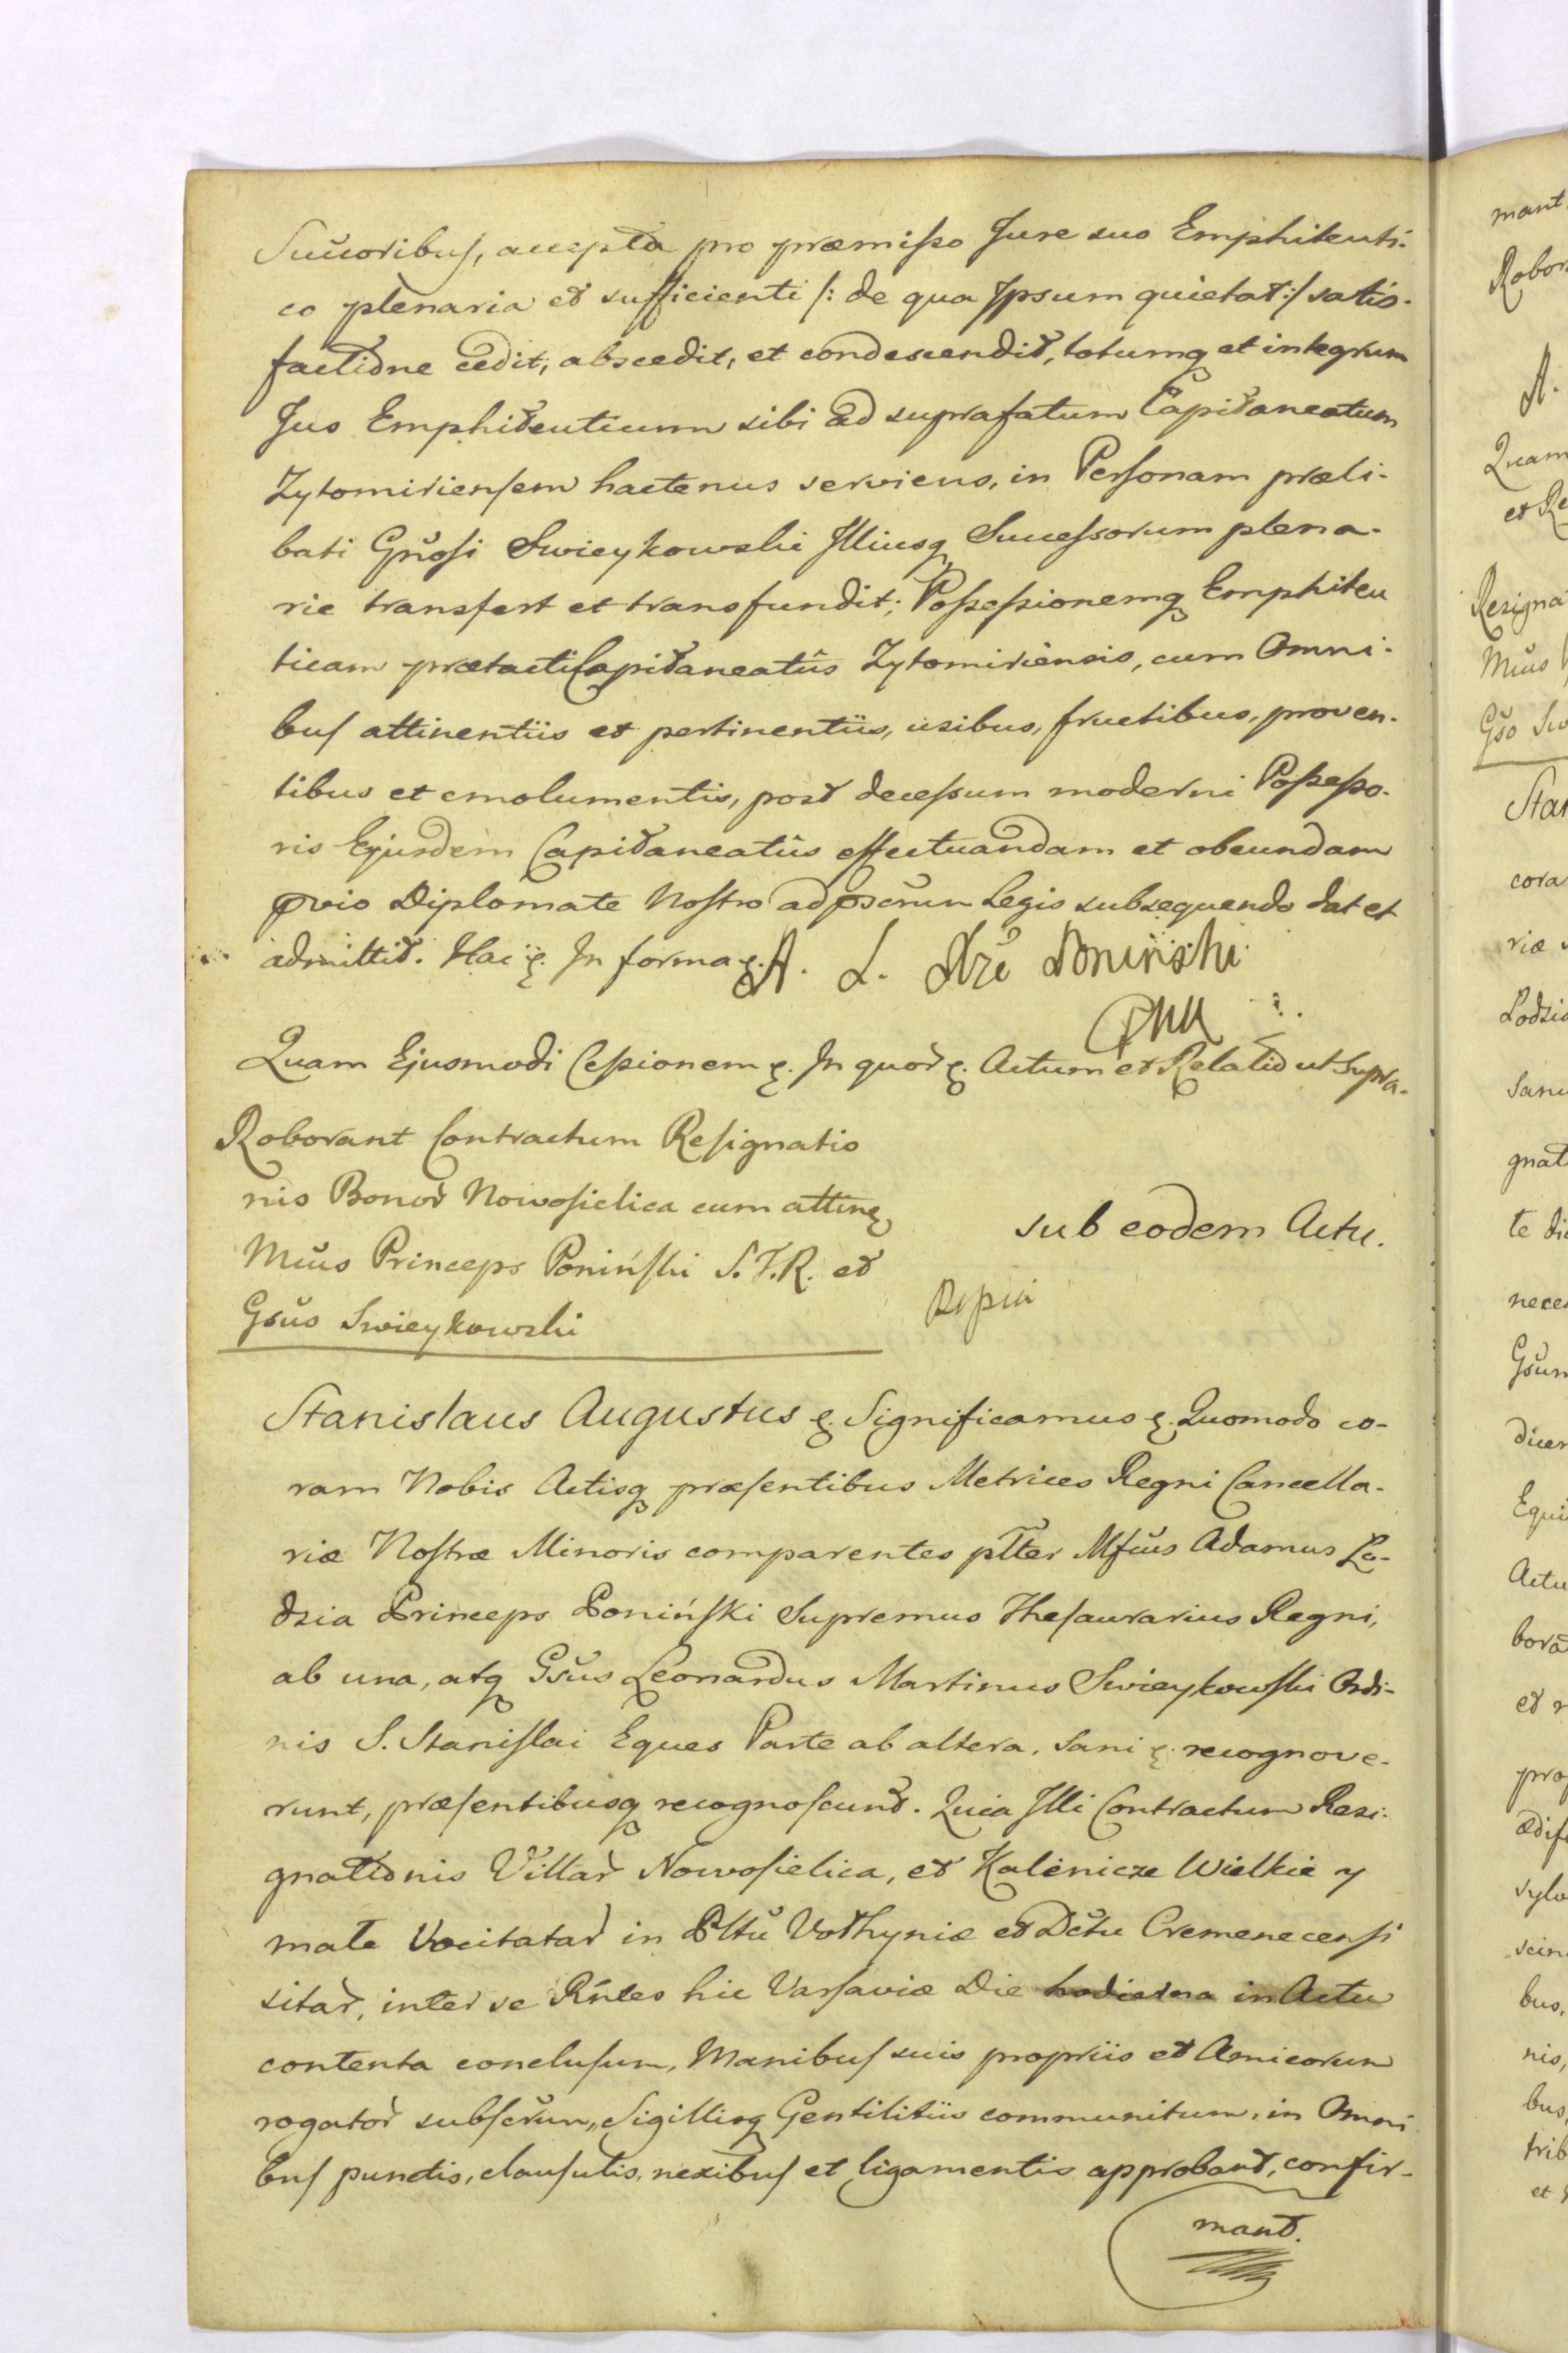 Succoribus, accepta pro præmisso Jure suo Emphiteuti-
co plenaria et sufficienti /: de qua Ipsum quietat :/ satis-
factione cedit, abscedit, et condescendit, totumq et integrum
Jus Emphiteuticum sibi ad suprafatum Capitaneatum
Zytomiriensem hactenus serviens, in Personam præli-
bati Gnosi Swieykowski Illiusq Successorum plena-
rie transfert et transfundit; Possessionemq Emphiteu
ticam prætacti Capitaneatûs Zytomiriensis, cum Omni-
bus attinentiis et pertinentiis, usibus, fructibus, proven-
tibus et emolumentis, post decessum moderni Possesso-
ris Ejusdem Capitaneatûs effectuandam et obeundam
prvio Diplomate Nostro ad prscrum Legis subsequendo dat et
admittit. Hac In forma A. L. Xże Poninski
Quam Ejusmodi Cessionem In quor Actum et Relatio ut Supra.
Roborant Contractum Resignatio
nis Bonor Nowosielica cum attinq
Mŭus Princeps Poniński S.T.R. et
Gsŭs Swieykowski
sub eodem Actu.
Stanislaus Augustus Significamus Quomodo co-
ram Nobis Actisq præsentibus Metrices Regni Cancella-
riæ Nostræ Minoris comparentes pltter Mfŭs Adamus Lo-
dzia Princeps Poniński Supremus Thesaurarius Regni,
ab una, atq Gsŭs Leonardus Martinus Swieykowski Ordi-
nis S. Stanislai Eques Parte ab altera, Sani recognove-
runt, præsentibusq recognoscunt. Quia Illi Contractum Resi-
gnationis Villar Nowosielica, et Kalenicze Wielkie y
małe Vocitatar in Pltŭ Volhyniæ et Dctŭ Cremenecensi
sitar, inter se Rńtes hic Varsaviæ Die hodierna in Actu
contenta conclusum, Manibus suis propriis et Amicorum
rogator subscrum, Sigillisq Gentilitiis communitum, in Omni
bus punctis, clausulis, nexibus et ligamentis approbant, confir-
mant.
mant
Robor
A.
Quam
et Re
Resigna
Mŭus
Gso Sw
Star
cora
riæ
Lodzia
Sanu
gnat
te di
nece
Gsum
dicen
Equi
Actu
bora
et r
pro
ædif
sylv
scin
bus,
nis,
bus,
trib
et